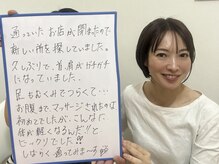 通っていたお店が閉まったので
新しい所を探していました。
久しぶりで、首、肩がガチガチ
になっていました。
足もむくみでつらくて…
お腹までマッサージされたのは
初めてでしたが、こんなに
体が軽くなるんだ!!と
ビックリでした!!!
しばらく通ってみまーす